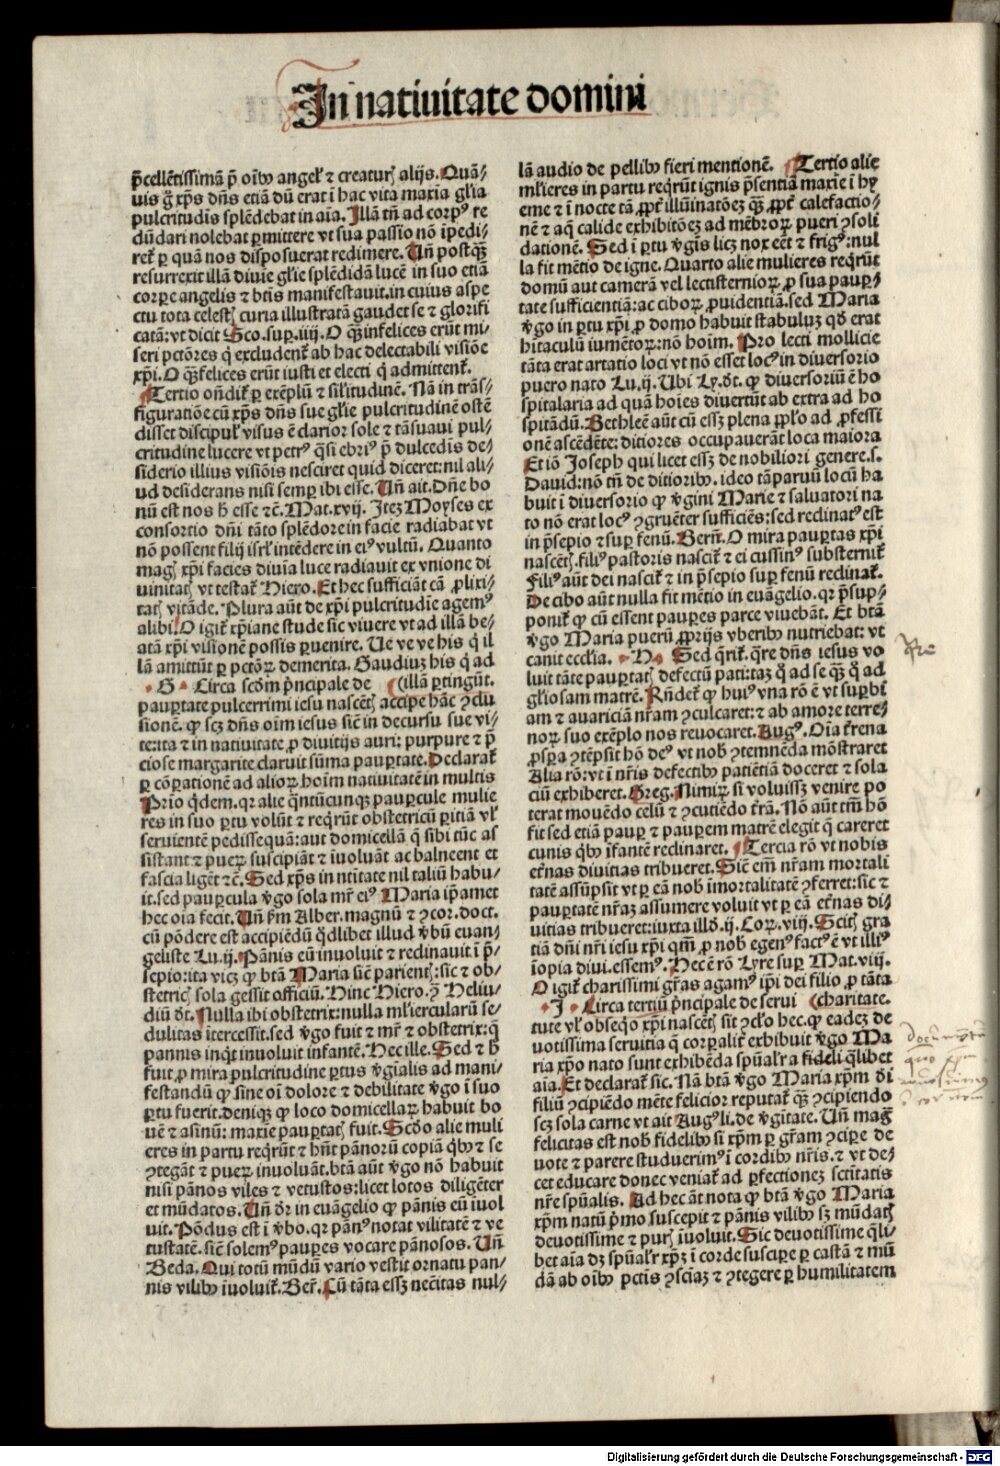 In natiuitate domini
p̄cellētissimā p̄ oībꝰ angeł ⁊ creaturꝭ alijs. Quā⸗
uis g̊ xp̄s dn̄s etiā dū erat ī hac vita maxīa gl̄ia
pulcritudīs splēdebat in aīa. Illā tn̄ ad corpꝰ re
dūdari nolebat ꝑmittere vt sua passio nō īpedi⸗
ret᷑ ꝑ quā nos disposuerat redimere. Un̄ postqꝫ
resurrexit illā diuīe gl̄ie splēdidā lucē in suo etiā
corꝑe angelis ⁊ btīs manifestauit. in cuius aspe
ctu tota celestꝭ curia illustratā gaudet se ⁊ glorifi
catā: vt dicit Sco. suꝑ. iiij. O qꝫ infelices erūt mi⸗
seri pctōres q̇ excludent᷑ ab hac delectabili visiōe
xp̄i. O qꝫ felices erūt iusti et electi q̇ admittent᷑.
Tertio on̄dit᷑ ꝑ exēplū ⁊ sil̄itudinē. Nā in trās⸗
figuratiōe cū xp̄s dn̄s sue gl̄ie pulcritudinē ostē
disset discipuł visus ē clarior sole ⁊ tā suaui pul⸗
critudine lucere vt petrꝰ q̄si ebriꝰ p̄ dulcedīs de⸗
siderio illius visiōis nesciret quid diceret: nil ali⸗
ud desiderans nisi semꝑ ibi esse. Un̄ ait. Dn̄e bo
nū est nos h̄ esse ⁊c̄. Mat. xvij. Itē Moyses ex
consortio dn̄i tāto splēdore in facie radiabat vt
nō possent filij isrł intēdere in eiꝰ vultū. Quanto
magꝭ xp̄i facies diuīa luce radiauit ex vnione di
uinitatꝭ vt testat᷑ Hiero. Et hec sufficiāt cā ꝓlixi⸗
tatꝭ vitāde. Plura aūt de xp̄i pulcritudīe agemꝰ
alibi. O igit᷑ xp̄iane stude sic viuere vt ad illā be⸗
atā xp̄i visionē possis ꝑuenire. Ue ve ve his q̇ il
lā amittūt ꝑ pctōꝝ demerita. Gaudiuꝫ his q̇ ad
G Circa scd̄m p̄ncipale de (illā ꝑtingūt.
pauꝑtate pulcerrimi iesu nascētꝭ accipe hāc ꝯclu
sionē. ꝙ scꝫ dn̄s oīm iesus sic̄ in decursu sue vi⸗
te: ita ⁊ in natiuitate ꝓ diuitijs auri: purpure ⁊ p̄
ciose margarite claruit sūma pauꝑtate. Declarat᷑
ꝑ cōꝑationē ad alioꝝ hoīm natiuitatē in multis
Prīo q̇dem. qꝛ alie q̄ntūcunqꝫ pauꝑcule mulie
res in suo ꝑtu volūt ⁊ req̇rūt obstetricū ꝑitiā vł
seruientē pedissequā: aut domicellā q̄ sibi tūc as
sistant ⁊ pueꝝ suscipiāt ⁊ īuoluāt ac balneent et
fascia ligēt ⁊c̄. Sed xp̄s in ntītate nil taliū habu⸗
it. sed pauꝑcula v̄go sola mr̄ eiꝰ Maria ip̄amet
hec oīa fecit. Un̄ ẜm Alber. magnū ⁊ ꝯcor. doct.
cū pōdere est accipiēdū q̇dlibet illud v̄bū euan⸗
geliste Lu. ij. Pānis eū inuoluit ⁊ reclinauit ī p̄⸗
sepio: ita vicꝫ ꝙ btā Maria sic̄ parientꝭ: sic ⁊ ob⸗
stetricꝭ sola gessit officiū. Hinc Hiero. ꝯ̄ Heluı⸗
diū dt̄. Nulla ibi obstetrix: nulla ml̄iercularū se⸗
dulitas ītercessit. sed v̄go fuit ⁊ mr̄ ⁊ obstetrix: q̄
pannis inq̇t inuoluit infantē. Hec ille. Sed ⁊ h̄
fuit ꝓ mira pulcritudine ꝑtus v̄gīalis ad mani⸗
festandū ꝙ sine oī dolore ⁊ debilitate v̄go ī suo
ꝑtu fuerit. deniqꝫ ꝙ loco domicellaꝝ habuit bo
uē ⁊ asinū: maxīe pauꝑtatꝭ fuit. Scd̄o alie muli
eres in partu req̇rūt ⁊ hn̄t pānorū copiā q̇bꝰ ⁊ se
ꝯtegāt ⁊ pueꝝ inuoluāt. btā aūt v̄go nō habuit
nisi pānos viles ⁊ vetustos: licet lotos diligēter
et mūdatos. Un̄ dr̄ in euāgelio ꝙ pānis eū īuol
uit. Pōdus est ī v̄bo. qꝛ pānꝰ notat vilitatē ⁊ ve
tustatē. sic̄ solemꝰ pauꝑes vocare pānosos. Un̄
Beda. Qui totū mūdū vario vestit ornatu pan⸗
nis vilibꝰ īuoluit᷑. Ber̄. Cū tāta essꝫ nec̄itas nul⸗
lā audio de pellibꝰ fieri mentionē. Tertio alie
ml̄ieres in partu req̇rūt ignis p̄sentiā maxīe ī hy
eme ⁊ ī nocte tā ꝓpt᷑ illūinatōeꝫ qꝫ ꝓpt᷑ calefactio⸗
nē ⁊ aq̄ calide exhibitōeꝫ ad mēbroꝝ pueri ꝯsoli
dationē. Sed ī ꝑtu v̄gīs licꝫ nox eēt ⁊ frigꝰ: nul
la fit mētio de igne. Quarto alie mulieres req̇rūt
domū aut camerā vel lectisternioꝝ ꝓ sua pauꝑ⸗
tate sufficientiā: ac ciboꝝ ꝓuidentiā. sed Maria
v̄go in ꝑtu xp̄i ꝓ domo habuit stabuluꝫ qd̄ erat
hītaculū iumētoꝝ: nō hoīm. Pro lecti mollicie
tāta erat artatio loci vt nō esset locꝰ in diuersorio
puero nato Lu. ij. Ubi Ly. dt. ꝙ diuersoriū ē ho
spitalaria ad quā hoīes diuertūt ab extra ad ho
spitādū. Bethleē aūt cū essꝫ plena ꝓpło ad ꝓfessi
onē ascēdēte: ditiores occupauerāt loca maiora
Et iō Joseph qui licet essꝫ de nobiliori genere. s.
Dauid: nō tn̄ de ditioribꝰ. ideo tā paruū locū ha
buit ī diuersorio ꝙ v̄gini Marie ⁊ saluatori na
to nō erat locꝰ ꝯgruēter sufficiēs: sed reclinatꝰ est
in p̄sepio ⁊ suꝑ fenū. Bern̄. O mira pauꝑtas xp̄i
nascētꝭ. filiꝰ pastoris nascit᷑ ⁊ ei cussinꝰ substernit᷑
Filiꝰ aūt dei nascit᷑ ⁊ in p̄sepio suꝑ fenū reclinat᷑.
De cibo aūt nulla fit mētio in euāgelio. qꝛ p̄sup⸗
ponit᷑ ꝙ cū essent pauꝑes parce viuebāt. Et btā
v̄go Maria puerū ꝓprijs vberibꝰ nutriebat: vt
canit eccl̄ia. H Sed q̄rit᷑. q̄re dn̄s iesus vo
luit tāte pauꝑtatꝭ defectū pati: taꝫ q̇ ad se qꝫ q̇ ad
gl̄iosam matrē. Rn̄det᷑ ꝙ huiꝰ vna rō ē vt suꝑbī
am ⁊ auariciā nr̄am ꝯculcaret: ⁊ ab amore terre⸗
noꝝ suo exēplo nos reuocaret. Augꝰ. Oīa t᷑rena
ꝓsꝑa ꝯtēpsit hō deꝰ vt nobꝭ ꝯtemnēda mōstraret
Alia rō: vt ī nr̄is defectibꝰ patiētiā doceret ⁊ sola
ciū exhiberet. Greg. Nimiꝝ si voluissꝫ venire po
terat mouēdo celū ⁊ ꝯcutiēdo t᷑rā. Nō aūt tm̄ hō
fit sed etiā pauꝑ ⁊ pauꝑem matrē elegit q̄ careret
cunis q̇bꝰ īfantē reclinaret. Tercia rō vt nobis
et᷑nas diuitias tribueret. Sic̄ em̄ nr̄am mortali
tatē assūpsit vt ꝑ eā nobꝭ īmortalitatē ꝯferret: sic ⁊
pauꝑtatē nr̄aꝫ assumere voluit vt ꝑ eā et᷑nas di⸗
uitias tribueret: iuxta illd̄. ij. Coꝝ. viij. Scitꝭ gra
tiā dn̄i nr̄i iesu xp̄i qm̄ ꝓ nobꝭ egenꝰ factꝰ ē vt illiꝰ
īopia diui. essemꝰ. Hec ē rō Lyre suꝑ Mat. viij.
O igit᷑ charissimi gr̄as agamꝰ ip̄i dei filio ꝓ tāta
I Circa tertiū p̄ncipale de serui (charitate.
tute vł obseq̇o xp̄i nascētꝭ sit ꝯcło hec. ꝙ eadeꝫ de
uotissima seruitia q̄ corꝑalit᷑ exhibuit v̄go Ma
ria xp̄o nato sunt exhibēda spūał'ra fideli q̄libet
aīa. Et declarat᷑ sic. Nā btā v̄go Maria xp̄m di
filiū ꝯcipiēdo mēte felicior reputat᷑ qꝫ ꝯcipiendo
scꝫ sola carne vt ait Augꝰ li. de v̄gītate. Un̄ mag̊
felicitas est nobꝭ fidelibꝰ si xp̄m ꝑ gr̄am ꝯciꝑe de
uote ⁊ parere studuerimꝰ ī cordibꝰ nr̄is. ⁊ vt de⸗
cet educare donec veniat᷑ ad ꝑfectionez sctītatis
nr̄e spūalis. Ad hec āt nota ꝙ btā v̄go Maria
xp̄m natū p̄mo suscepit ⁊ pānis vilibꝰ sꝫ mūdatꝭ
deuotissime ⁊ purꝭ īuoluit. Sic deuotissime q̄li⸗
bet aīa dꝫ spūał'r xp̄ꝫ ī corde susciꝑe ꝑ castā ⁊ mū
dā ab oībꝰ pctīs ꝯsciāꝫ ⁊ ꝯtegere ꝑ humilitatem
Digitalisierung gefördert durch die Deutsche Forschungsgemeinschaft - DFG